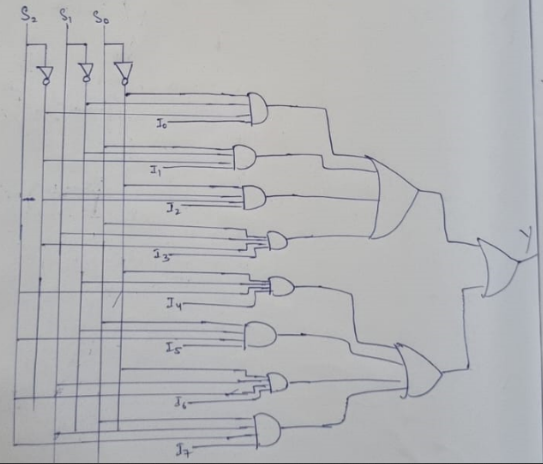 S₂ S₁ S₀
I₀
I₁
I₂
I₃
Y
I₄
I₅
I₆
I₇